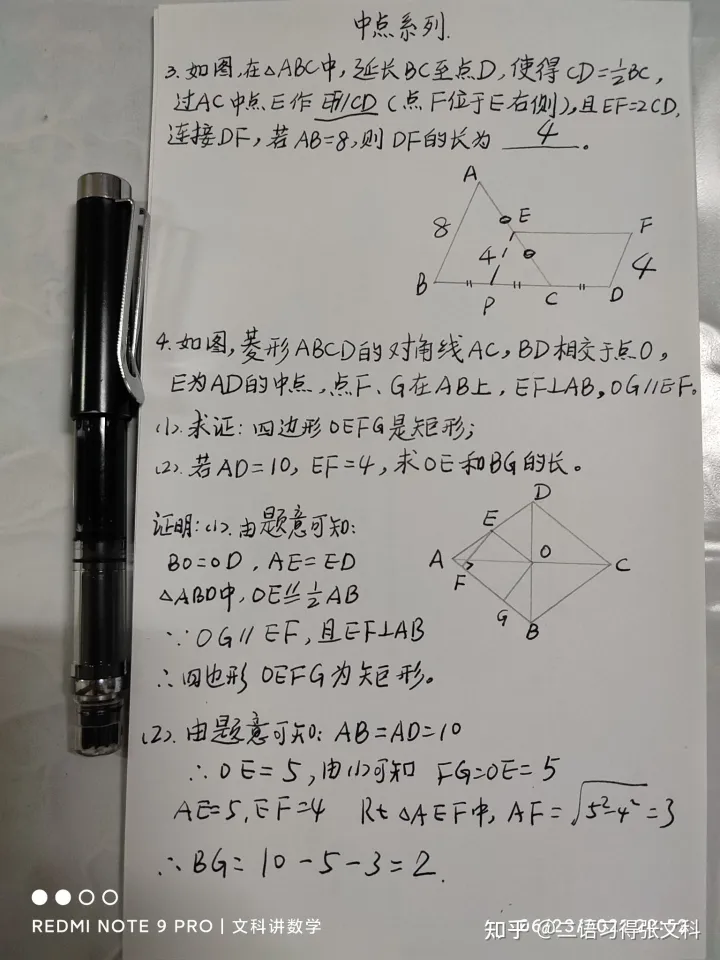 中点系列.
3.如图,在△ABC中,延长BC至点D,使得CD=½BC,
过AC中点E作EF//CD(点F位于E右侧),且EF=2CD,
连接DF,若AB=8,则DF的长为 4 。
A
E
F
8
4
4
B
P
C
D
4.如图,菱形ABCD的对角线AC,BD相交于点O,
E为AD的中点,点F、G在AB上,EF⊥AB,OG//EF。
(1).求证:四边形OEFG是矩形;
(2).若AD=10,EF=4,求OE和BG的长。
D
E
A
O
C
F
G
B
证明:(1).由题意可知:
BO=OD,AE=ED
△ABD中,OE//=½AB
∵OG//EF,且EF⊥AB
∴四边形OEFG为矩形。
(2).由题意可知:AB=AD=10
∴OE=5,由(1)可知 FG=OE=5
AE=5,EF=4 Rt△AEF中,AF=√5²-4²=3
∴BG=10-5-3=2.
REDMI NOTE 9 PRO | 文科讲数学
知乎 @三语习得张文科